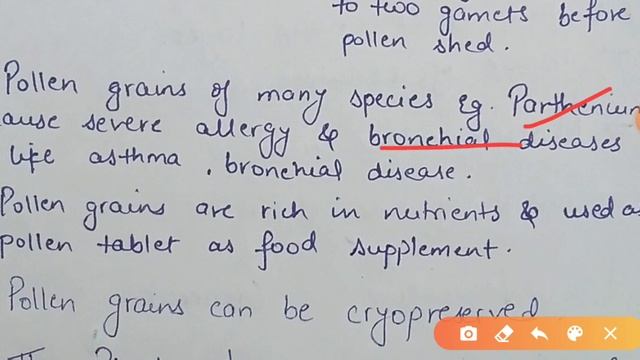 to two gamets before
pollen shed.
Pollen grains of many species Eg. Parthenium
ause severe allergy & bronchial diseases
like asthma, bronchial disease.
Pollen grains are rich in nutrients & used as
pollen tablet as food supplement.
Pollen grains can be cryopreserved